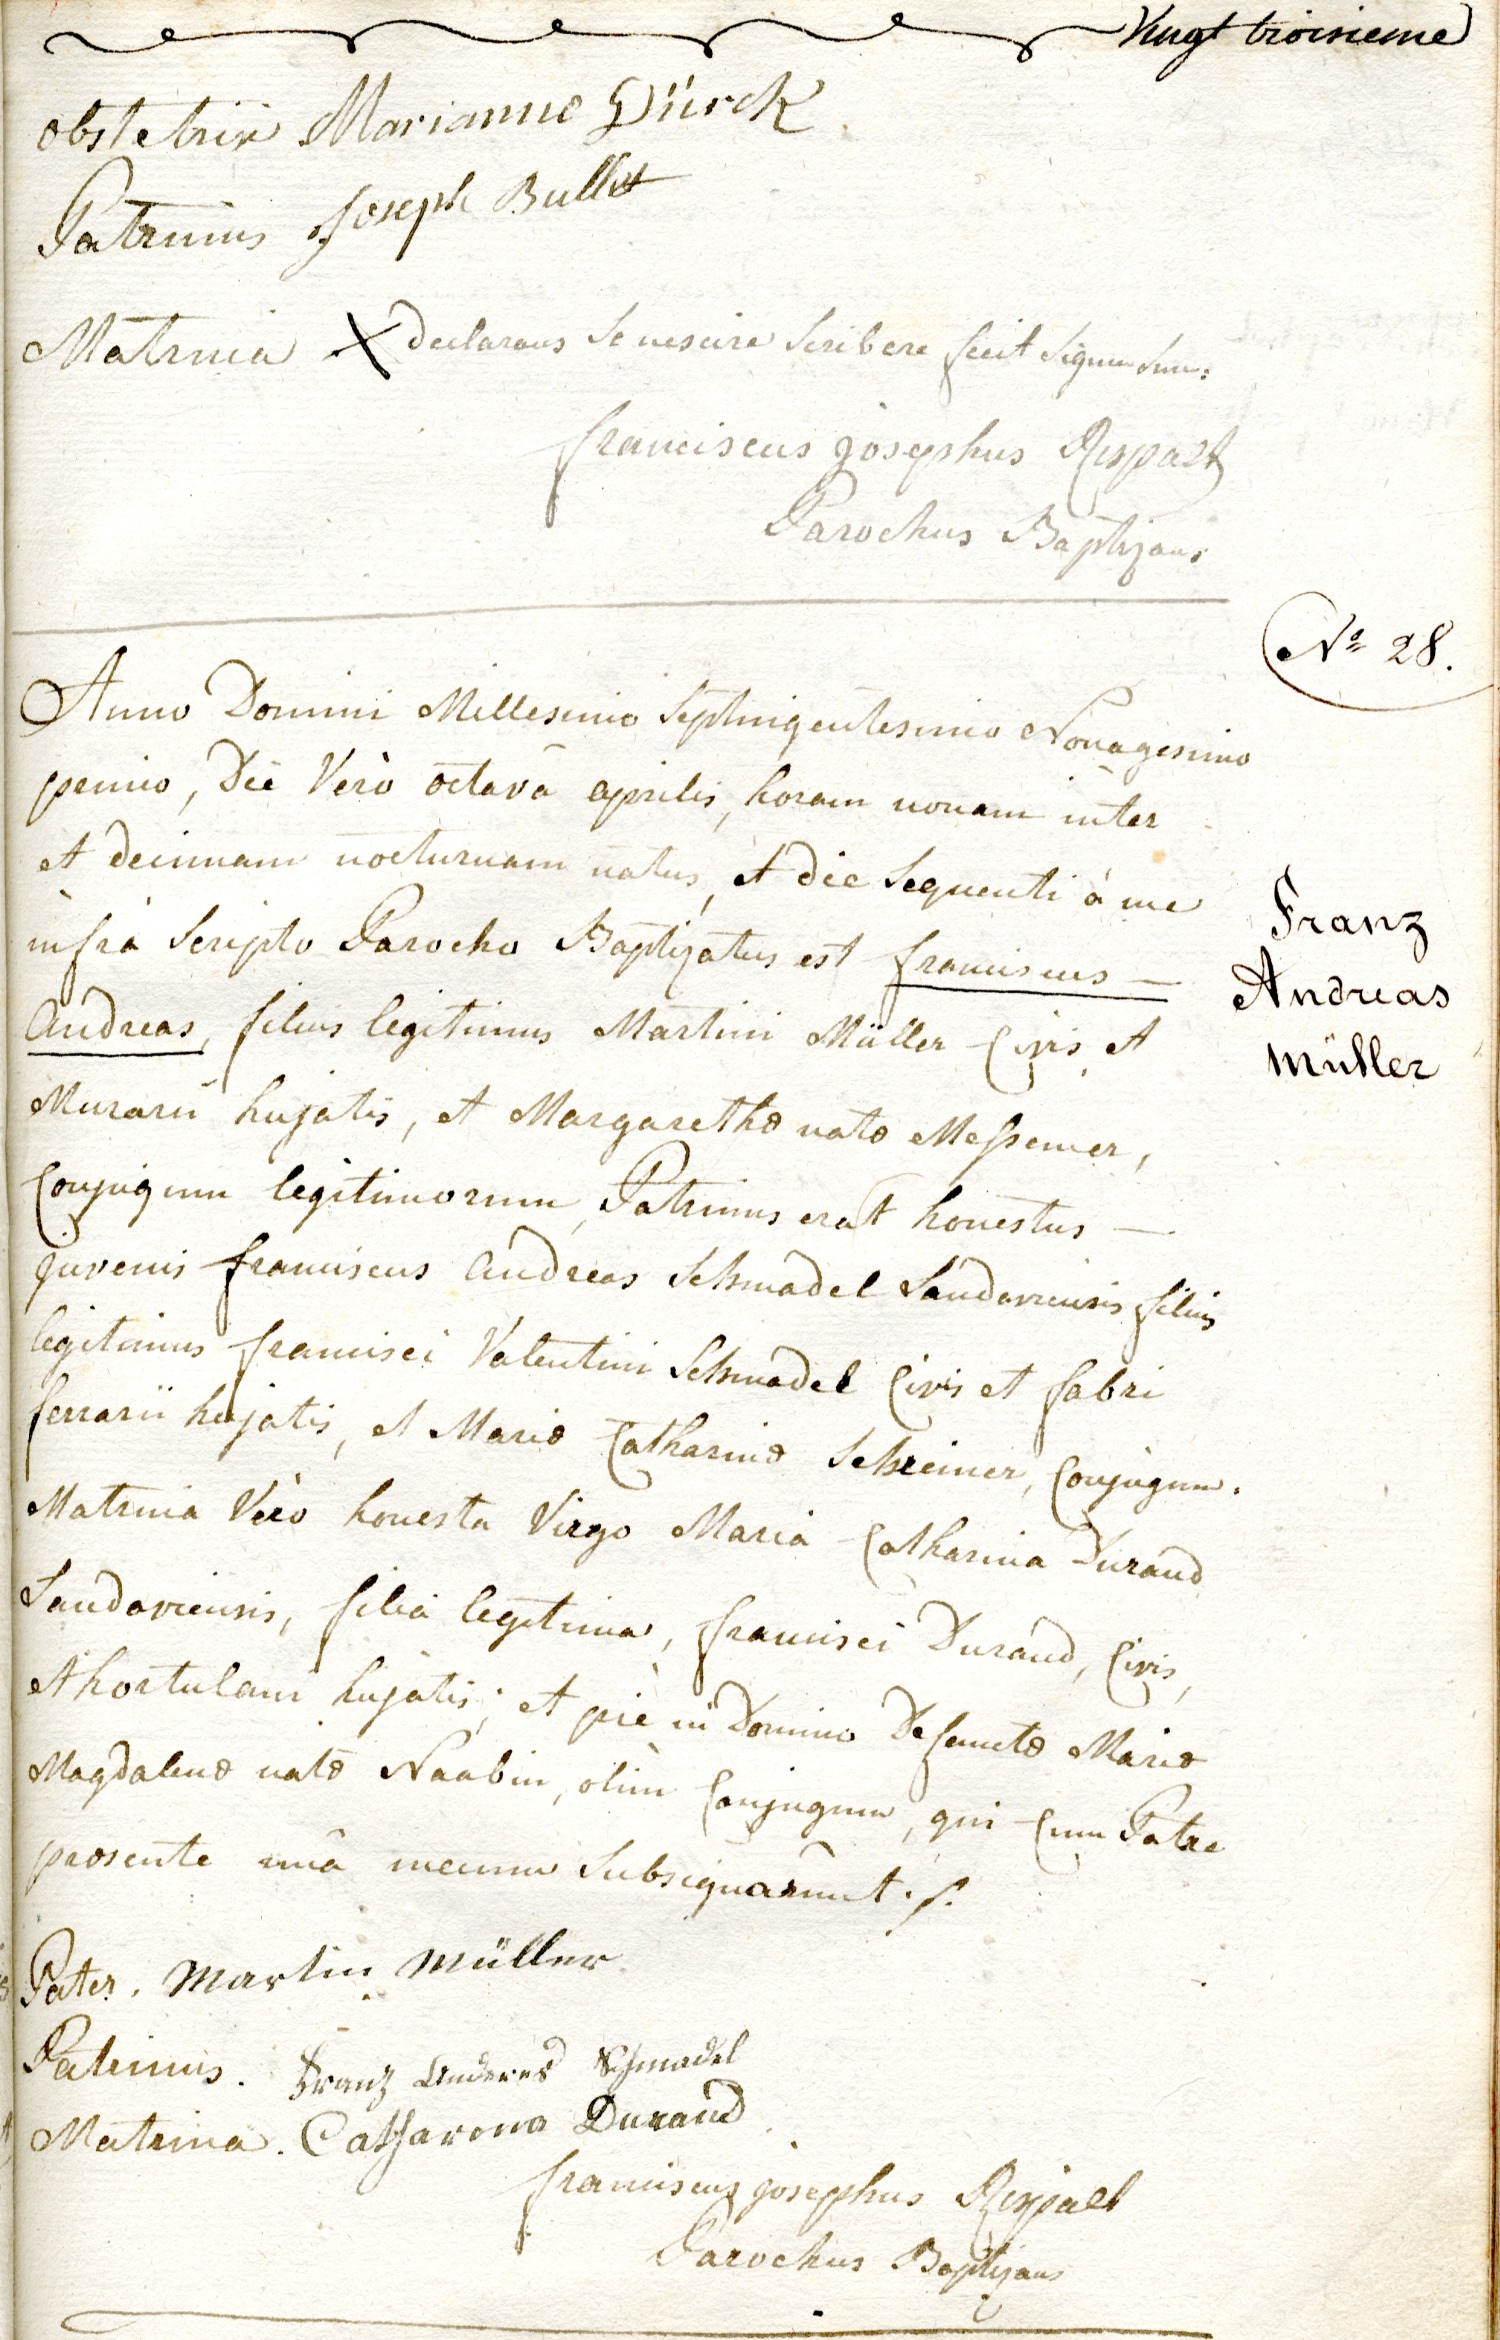 Vingt troisieme
obstetrix Marianne Dürck
Patrinus Joseph Bullet
Matrina X declarans se nescire scribere fecit signum suu:
franciscus josephus Rispalt
Parochus Baptizans
Nº 28.
Anno Domini Millesimo Septingentesimo Nonagesimo
primo, Die Verò octavâ aprilis, horam nonam inter
et decimam nocturnam natus, et die sequenti à me
infrà scripto Parocho Baptizatus est franciscus —
andreas, filius legitimus Martini Müller Civis et
Murarii hujatis, et Margarethæ natæ Messemer,
Conjugum legitimorum, Patrinus erat honestus —
juvenis franciscus andreas Schmadel Landaviensis filius
legitimus francisci Valentini Schmadel Civis et fabri
ferrarii hujatis, et Mariæ Catharinæ Schreiner, Conjugum.
Matrina Verò honesta Virgo Maria Catharina Durand
Landaviensis, filia legitima, francisci Durand, Civis,
et hortulani hujatis; et piè in Domino Defunctæ Mariæ
Magdalenæ natæ Naabin, olim Conjugum, qui Cum Patre
præsente unâ mecum subsignarunt.
Franz
Andreas
Müller
Pater. Martin Müller
Patrinus. Franz Anderes Schmadel
Matrina. Catharena Durand
franciscus josephus Rispalt
Parochus Baptizans